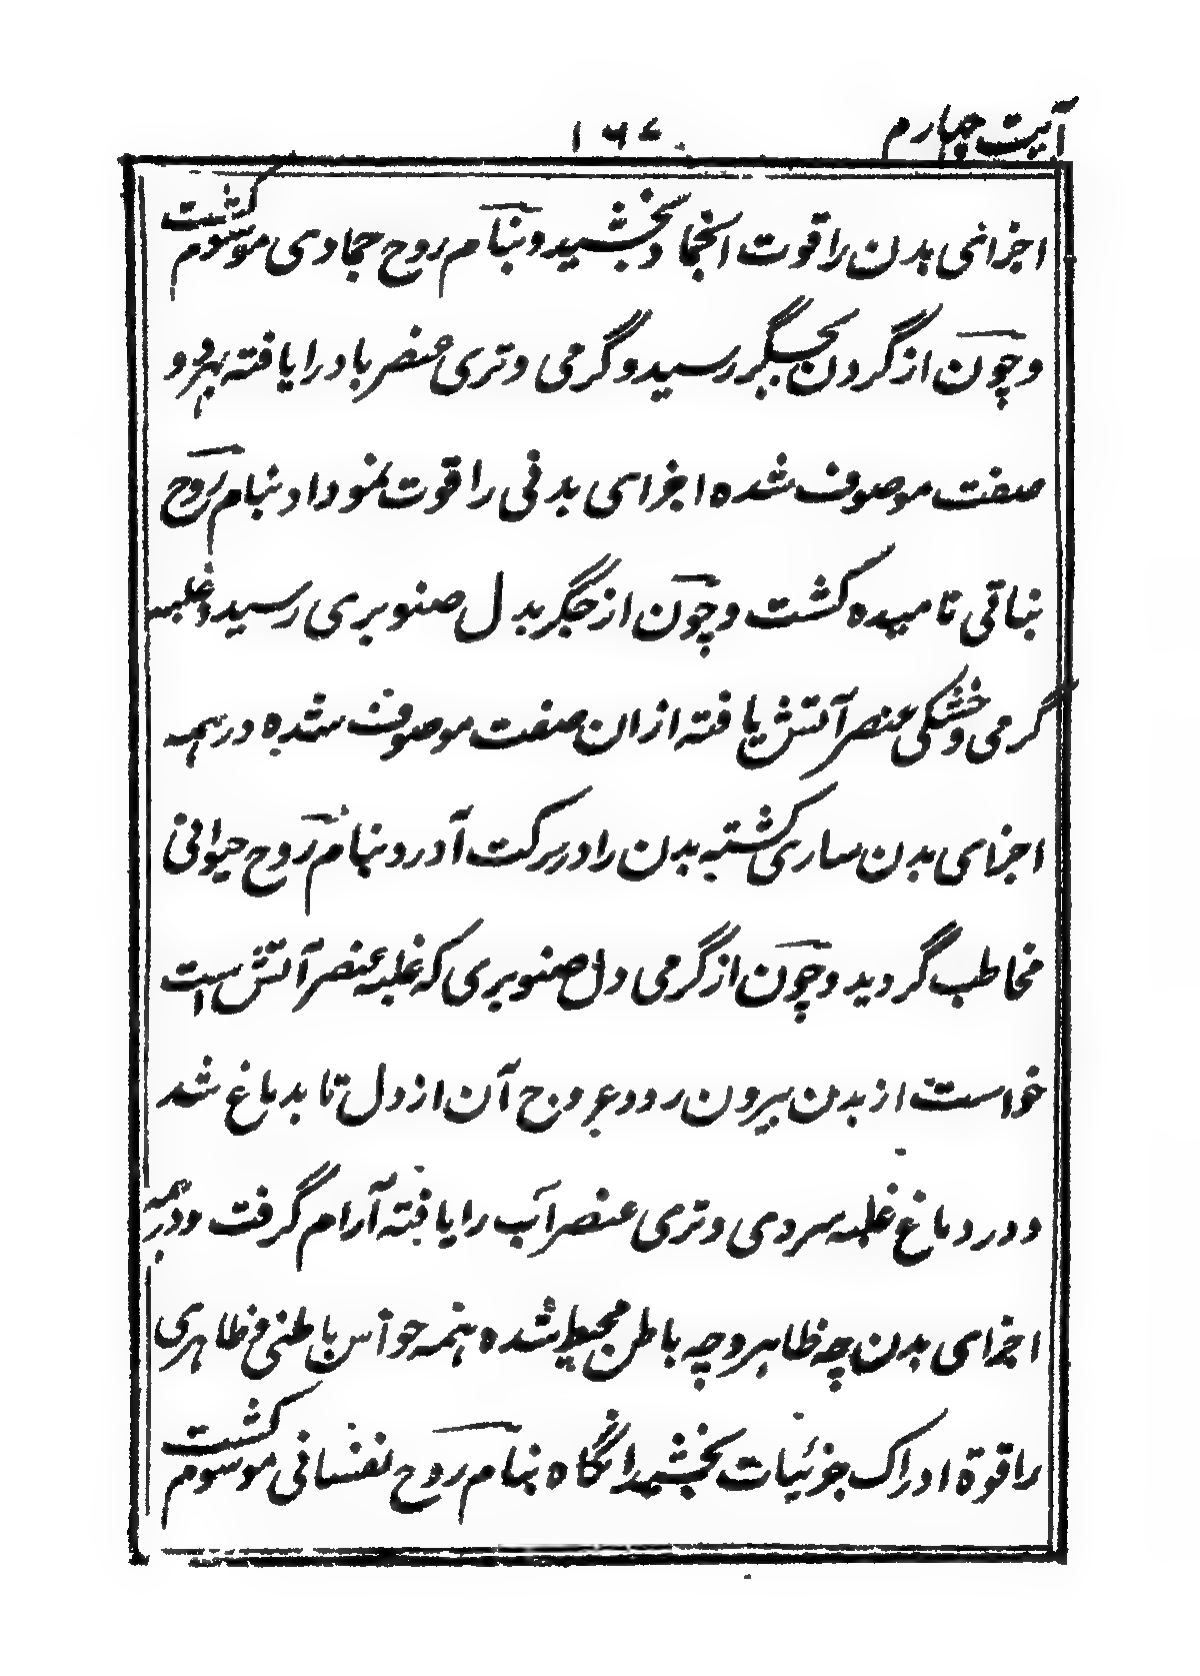 آیت چهارم
۱۶۷
اجزائی بدن را قوت انجماد بخشید و بنام روح جمادی موسوم گشت
و چون از گردن بجگر رسید و گرمی و تری عنصر باد را یافته بهر دو
صفت موصوف شده اجزای بدنی را قوت نمو داد و بنام روح
نباتی نامیده گشت و چون از جگر بدل صنوبری رسید و غلبه
گرمی و خشکی عنصر آتش یافته ازان صفت موصوف شده در همه
اجزای بدن ساری گشته بدن را در حرکت آورد و بنام روح حیوانی
مخاطب گردید و چون از گرمی دل صنوبری که غلبه عنصر آتش است
خواست از بدن بیرون رود عروج آن از دل تا بدماغ شد
و در دماغ غلبه سردی و تری عنصر آب را یافته آرام گرفت و در همه
اجزای بدن چه ظاهر و چه باطن محیط شده همه حواس باطنی و ظاهری
را قوة ادراک جزئیات بخشید انگاه بنام روح نفسانی موسوم گشت